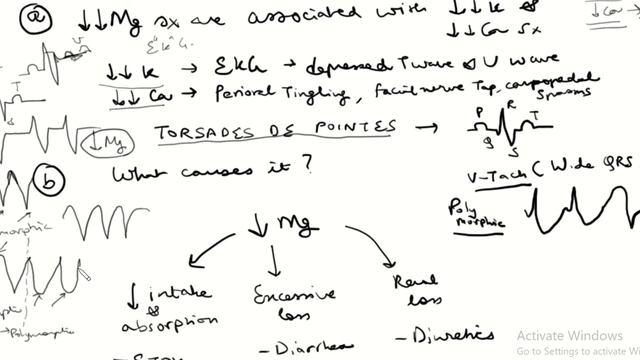 a ↓↓Mg sx are associated with ↓↓k &
↓↓Ca sx
EKG.
↓↓k → EKG → depressed T wave & U wave
↓↓Ca → Perioral Tingling, facial nerve Tap, carpopedal
spasms
↓Mg TORSADES DE POINTES →
P R T
Q S
b What causes it?
V-Tach ( Wide QRS
Poly
morphic
↓ Mg
↓ intake
&
absorption
Excessive
loss
- Diarrhea
Renal
loss
- Diuretics
→ Polymorphic
↓Ca
T
S
Activate Windows
Go to Settings to activate Wi